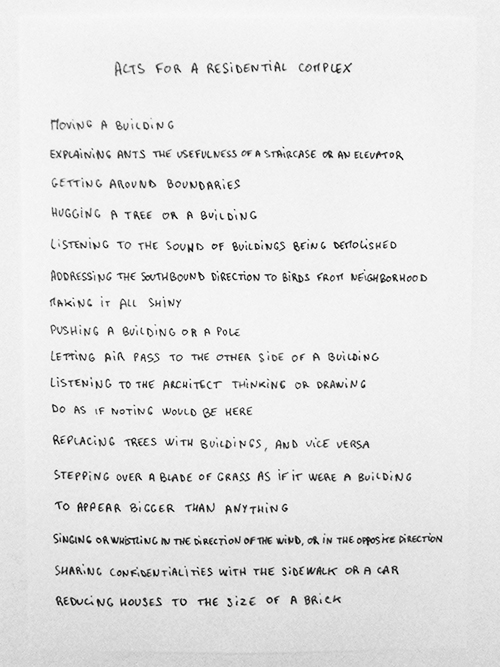 ACTS FOR A RESIDENTIAL COMPLEX
MOVING A BUILDING
EXPLAINING ANTS THE USEFULNESS OF A STAIRCASE OR AN ELEVATOR
GETTING AROUND BOUNDARIES
HUGGING A TREE OR A BUILDING
LISTENING TO THE SOUND OF BUILDINGS BEING DEMOLISHED
ADDRESSING THE SOUTHBOUND DIRECTION TO BIRDS FROM NEIGHBORHOOD
MAKING IT ALL SHINY
PUSHING A BUILDING OR A POLE
LETTING AIR PASS TO THE OTHER SIDE OF A BUILDING
LISTENING TO THE ARCHITECT THINKING OR DRAWING
DO AS IF NOTING WOULD BE HERE
REPLACING TREES WITH BUILDINGS, AND VICE VERSA
STEPPING OVER A BLADE OF GRASS AS IF IT WERE A BUILDING
TO APPEAR BIGGER THAN ANYTHING
SINGING OR WHISTLING IN THE DIRECTION OF THE WIND, OR IN THE OPPOSITE DIRECTION
SHARING CONFIDENTIALITIES WITH THE SIDEWALK OR A CAR
REDUCING HOUSES TO THE SIZE OF A BRICK